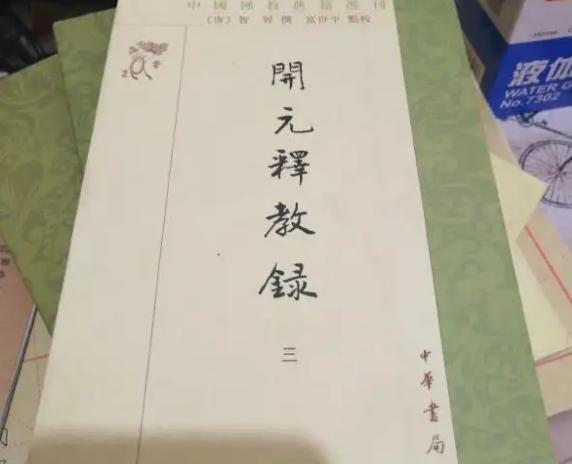 中國佛教典籍選刊
〔唐〕智昇 撰 富世平 點校
開元釋教録
三
中華書局
液体
WATER G
No.7302